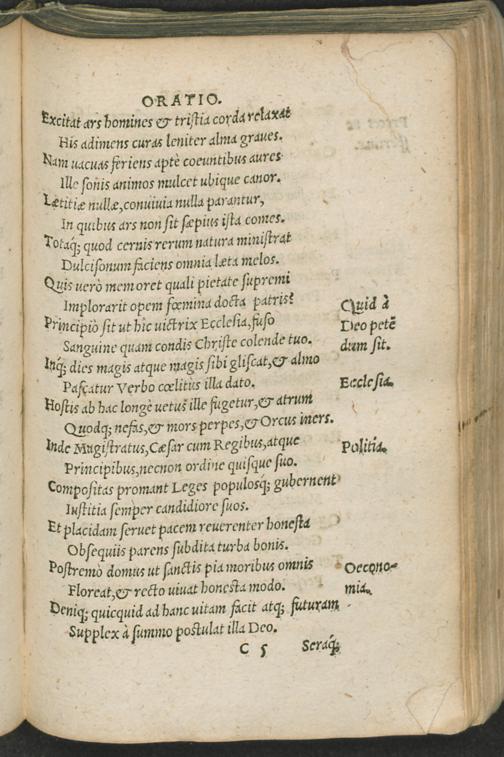 ORATIO.
Excitat ars homines & tristia corda relaxat
His adimens curas leniter alma graves.
Nam uacuas feriens aptè coeuntibus aures
Ille sonis animos mulcet ubique canor.
Lætitiæ nullæ, conuiuia nulla parantur,
In quibus ars non sit sæpius ista comes.
Totaq; quod cernis rerum natura ministrat
Dulcisonum faciens omnia læta melos.
Quis uerò memoret quali pietate supremi
Implorarit opem fœmina docta patris?
Quid à
Principiò sit ut hic uictrix Ecclesia, fuso
Deo petē
Sanguine quam condis Christe colende tuo.
dum sit.
Inq; dies magis atque magis sibi gliscat, & almo
Pascatur Verbo cœlitus illa dato.
Ecclesia.
Hostis ab hac longè uetus ille fugetur, & atrum
Quodq; nefas, & mors perpes, & Orcus iners.
Inde Magistratus, Cæsar cum Regibus, atque
Politia.
Principibus, necnon ordine quisque suo.
Compositas promant Leges populosq; gubernent
Iustitia semper candidiore suos.
Et placidam seruet pacem reuerenter honesta
Obsequiis parens subdita turba bonis.
Postremò domus ut sanctis pia moribus omnis
Oecono-
Floreat, & recto uiuat honesta modo.
mia.
Deniq; quicquid ad hanc uitam facit atq; futuram
Supplex à summo postulat illa Deo.
C 5 Seraq;